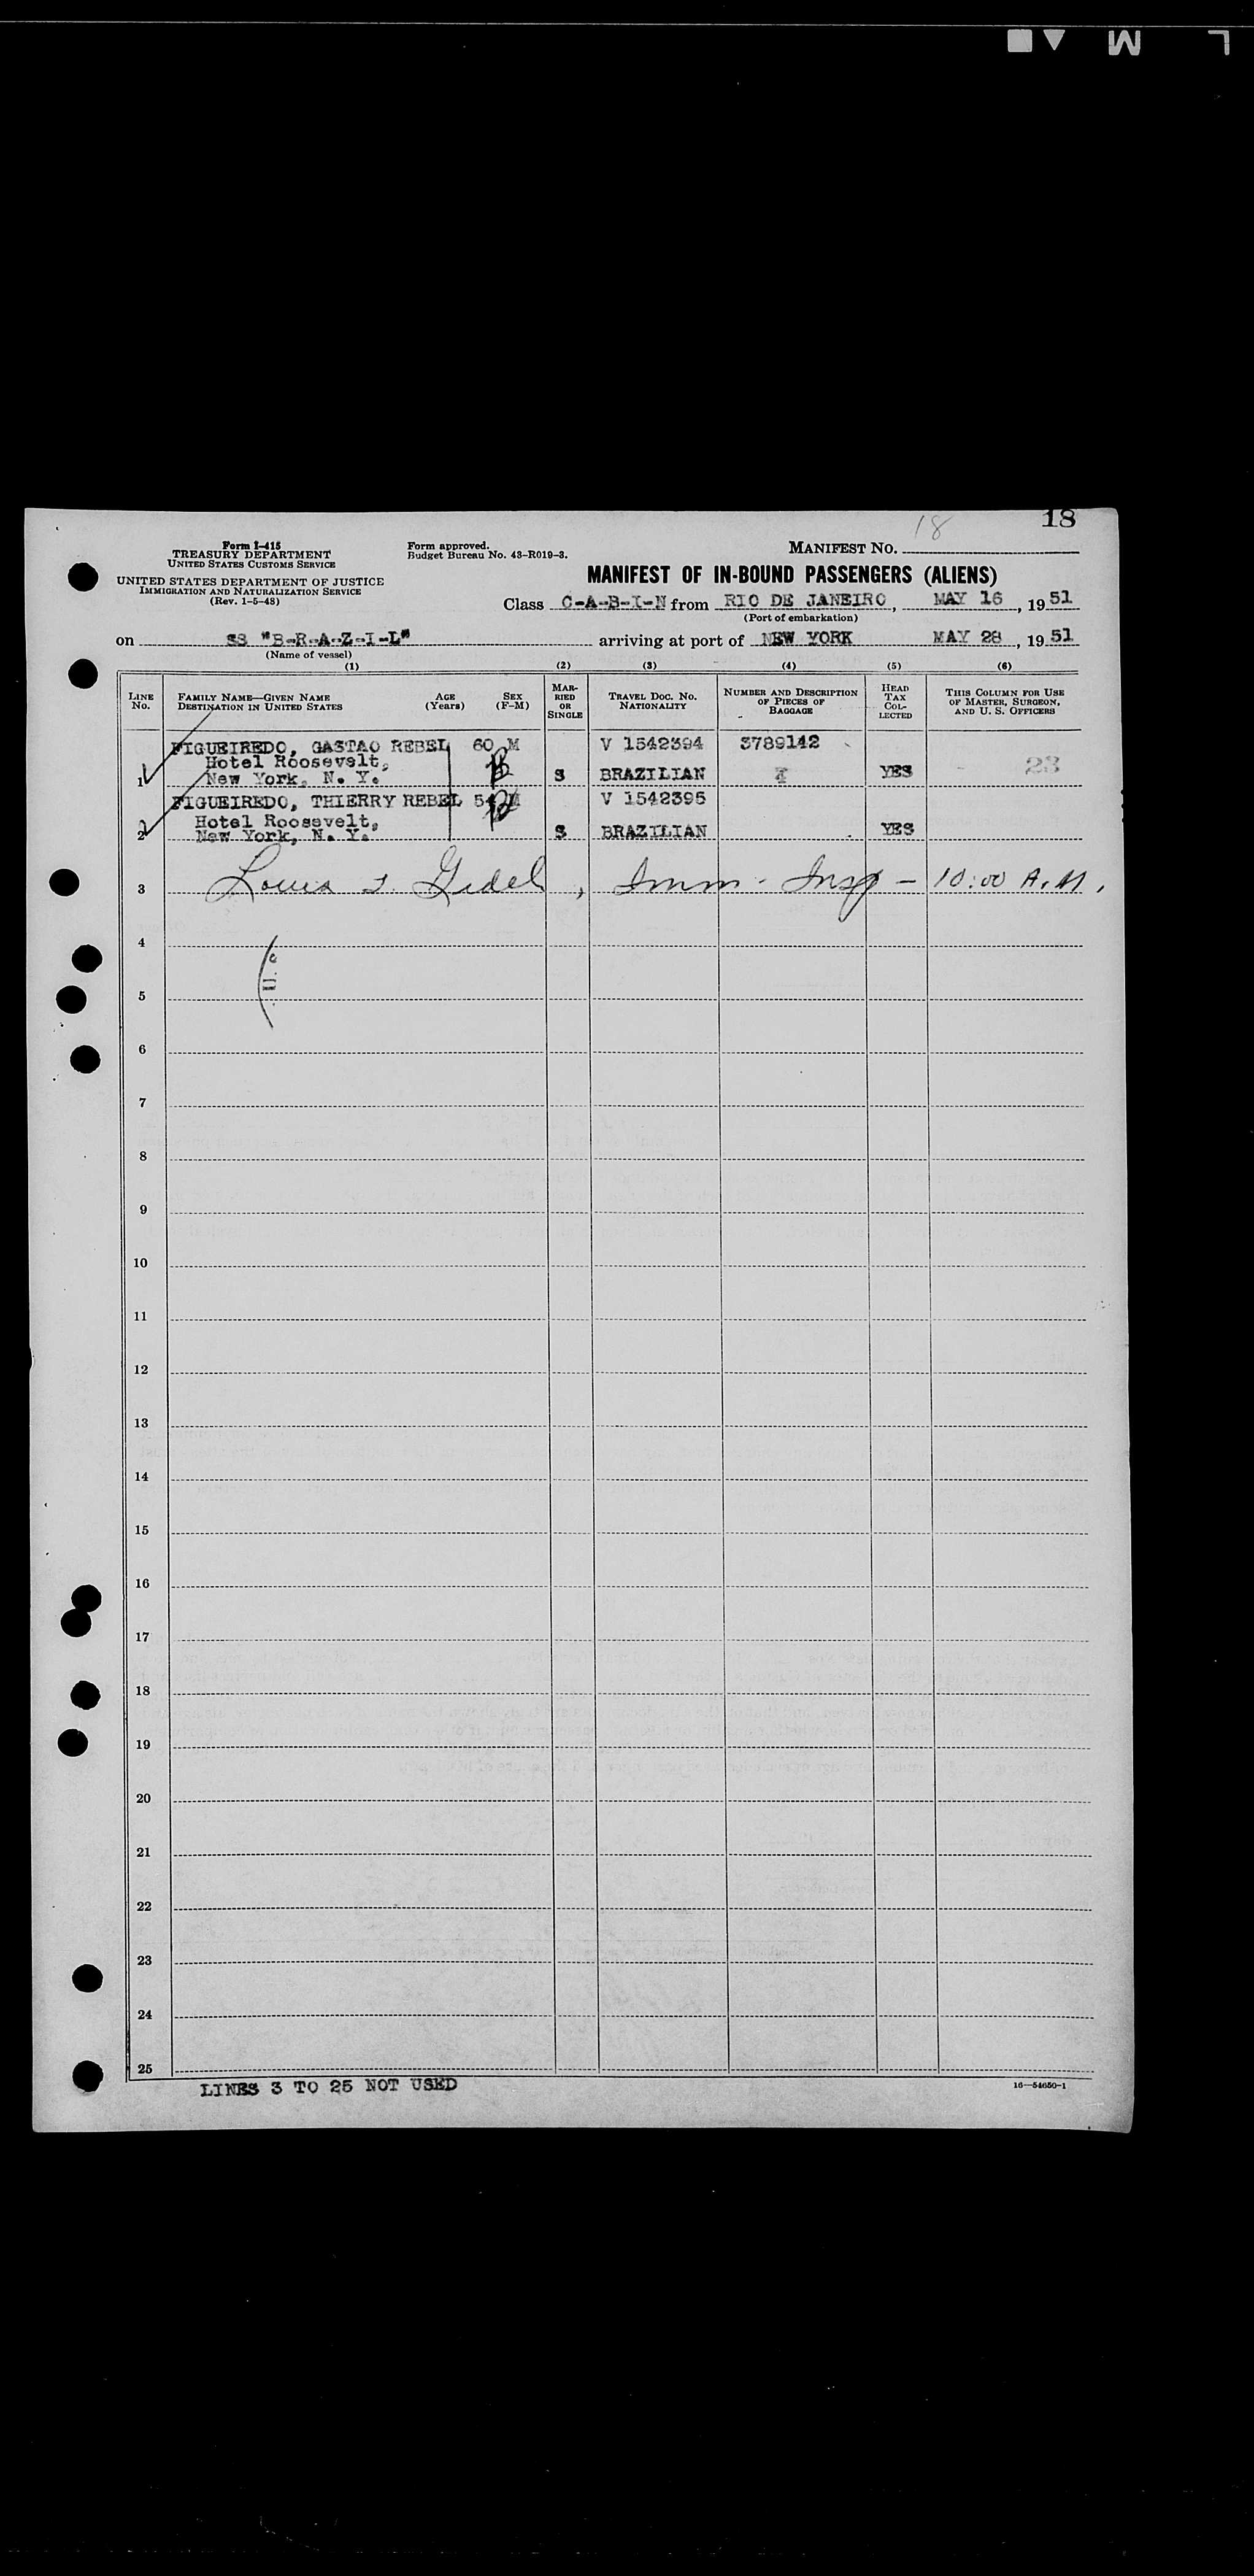 18
18
Form I-415
TREASURY DEPARTMENT
UNITED STATES CUSTOMS SERVICE
Form approved.
Budget Bureau No. 43-R019-3.
MANIFEST NO.
UNITED STATES DEPARTMENT OF JUSTICE
IMMIGRATION AND NATURALIZATION SERVICE
(Rev. 1-5-48)
MANIFEST OF IN-BOUND PASSENGERS (ALIENS)
Class C-A-B-I-N from RIO DE JANEIRO, MAY 16, 1951
(Port of embarkation)
on SS "B-R-A-Z-I-L" arriving at port of NEW YORK MAY 28, 1951
(Name of vessel)
(1) (2) (3) (4) (5) (6)
LINE No. FAMILY NAME—GIVEN NAME DESTINATION IN UNITED STATES AGE (Years) SEX (F-M) MARRIED OR SINGLE TRAVEL DOC. NO. NATIONALITY NUMBER AND DESCRIPTION OF PIECES OF BAGGAGE HEAD TAX COLLECTED THIS COLUMN FOR USE OF MASTER, SURGEON, AND U. S. OFFICERS
FIGUEIREDO, GASTAO REBEL 60 M V 1542394 3789142
Hotel Roosevelt,
1 New York, N. Y. S BRAZILIAN YES 23
FIGUEIREDO, THIERRY REBEL V 1542395
Hotel Roosevelt,
2 New York, N. Y. S BRAZILIAN YES
3 Louis Gidel, Imm. Insp - 10:00 A.M.
4
5
6
7
8
9
10
11
12
13
14
15
16
17
18
19
20
21
22
23
24
25
LINES 3 TO 25 NOT USED
16—54650-1